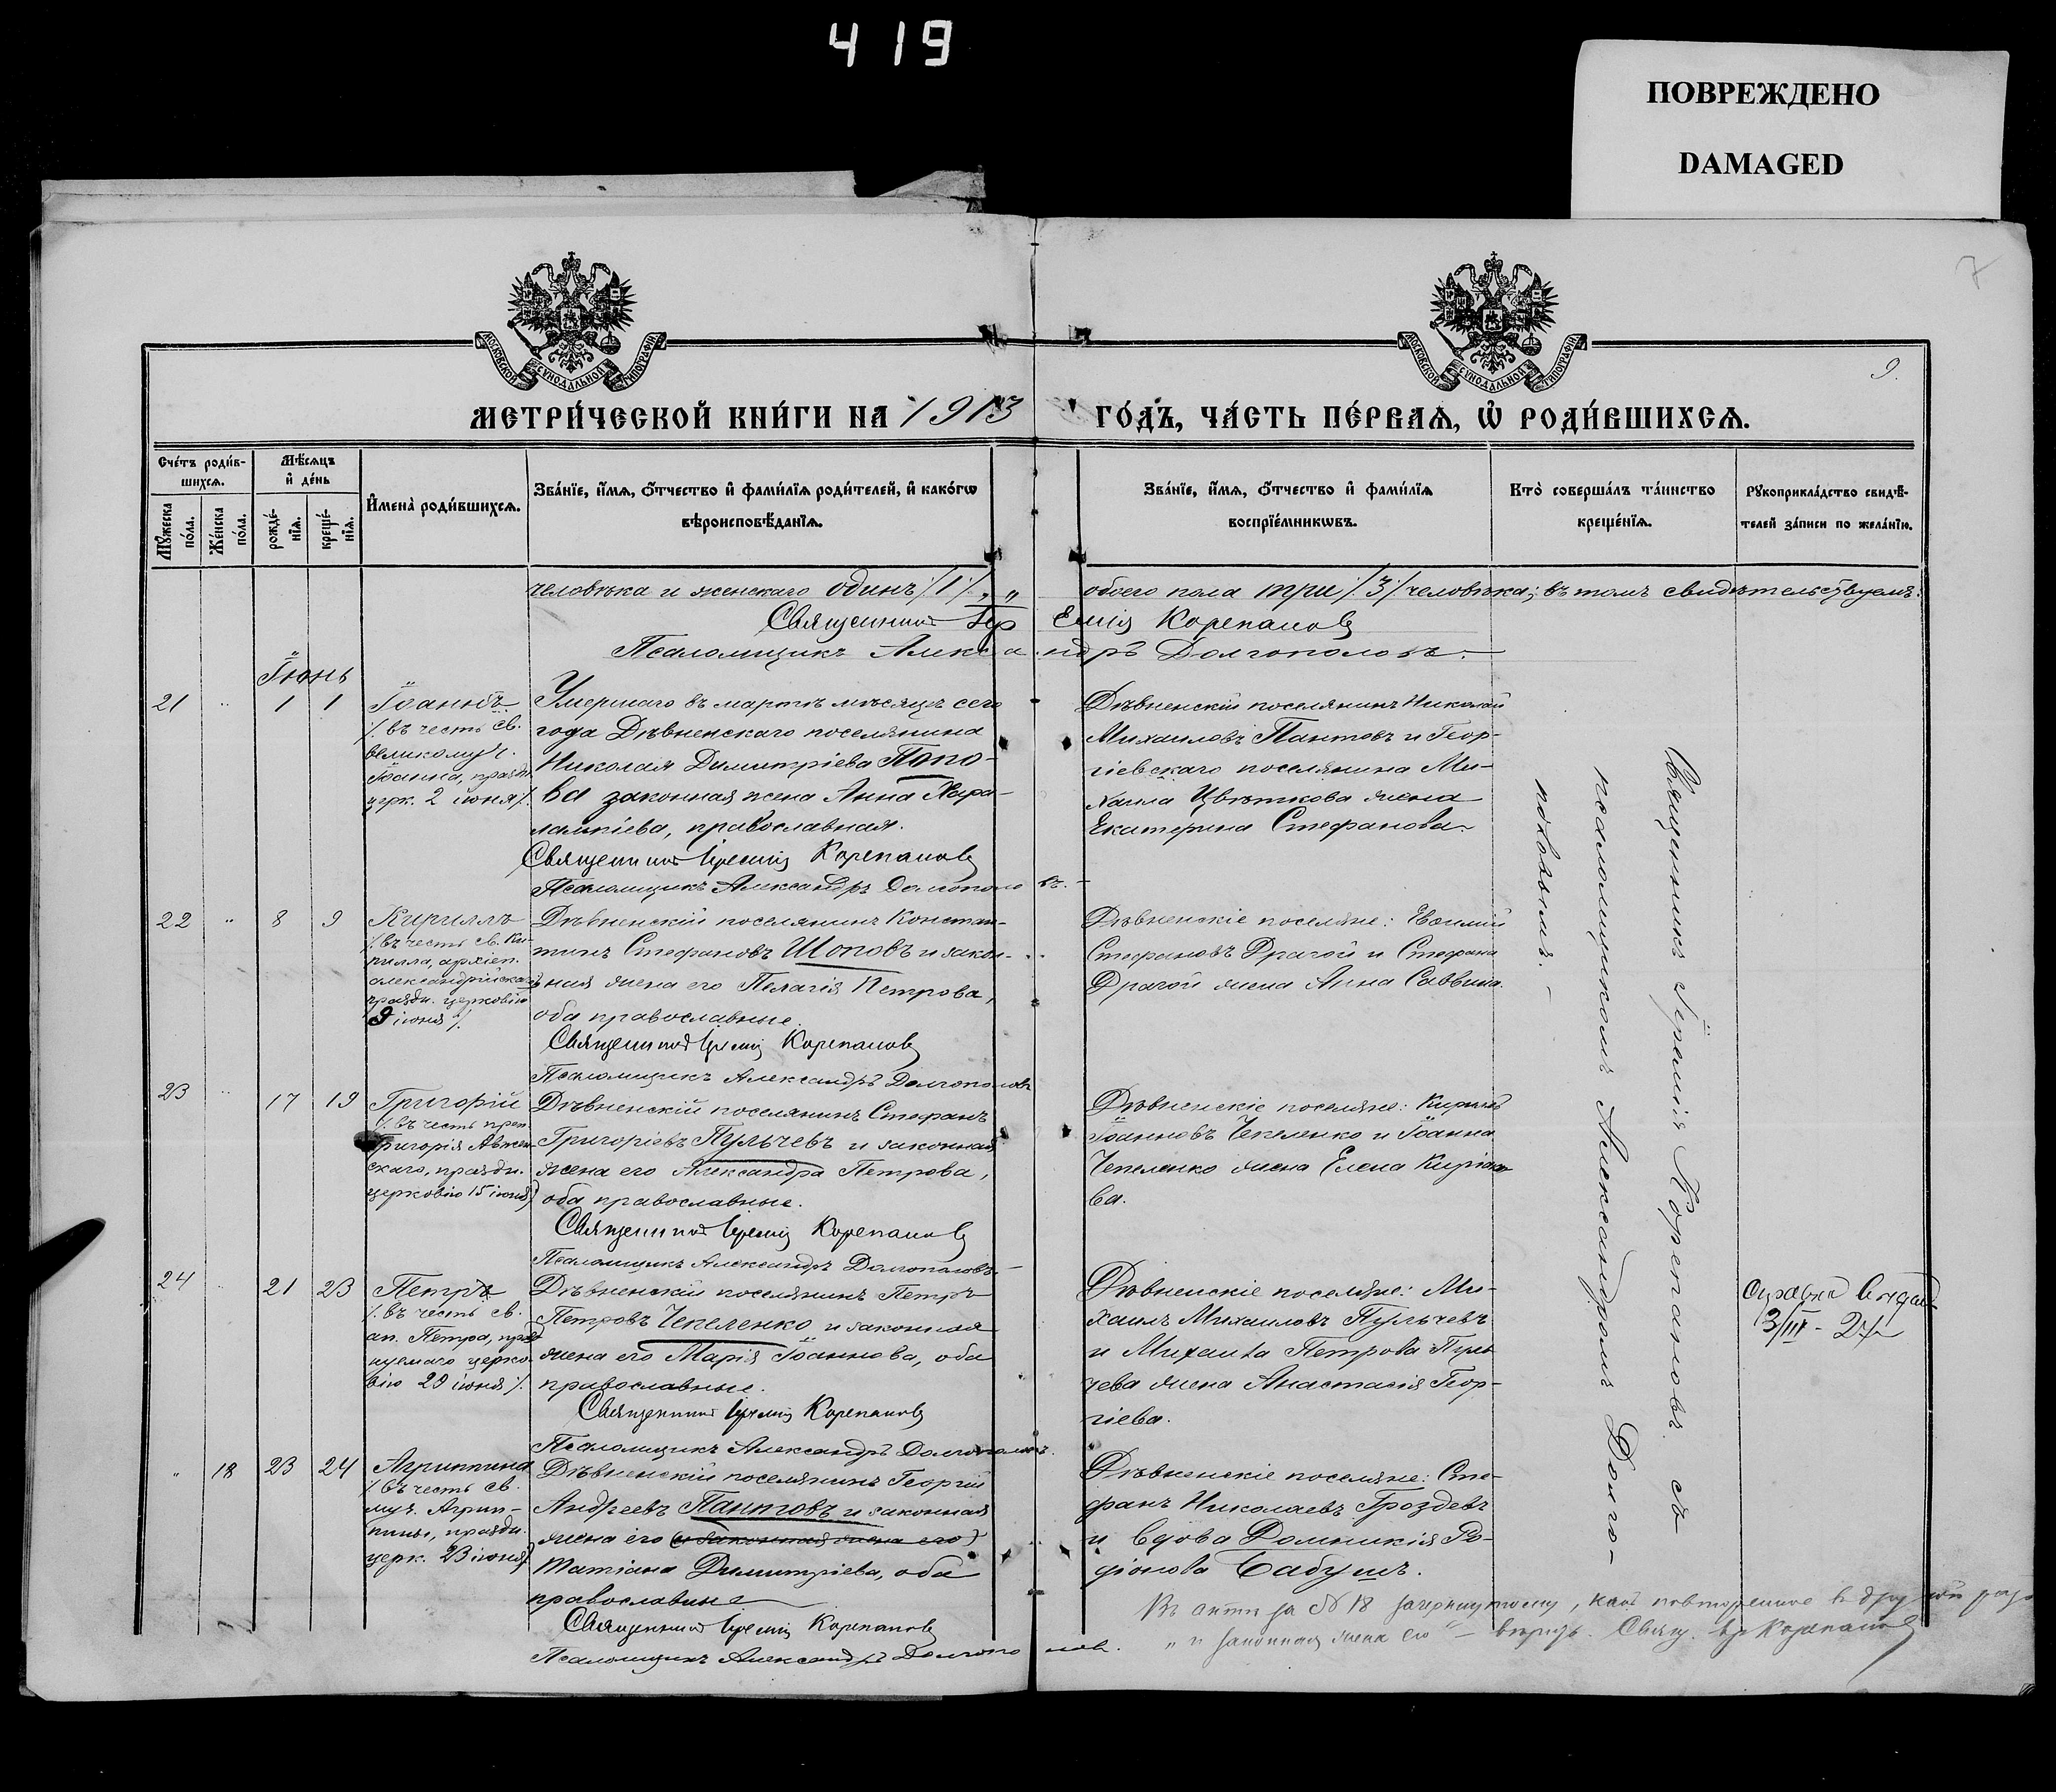 419
ПОВРЕЖДЕНО
DAMAGED
7
9.
МОСКОВСКОЙ СУНОДАЛЬНОЙ ТИПОГРАФІИ
МОСКОВСКОЙ СУНОДАЛЬНОЙ ТИПОГРАФІИ
МЕТРИ́ЧЕСКОЙ КНИ́ГИ НА 1913 ГО́ДЪ, ЧА́СТЬ ПЕ́РВАѦ, Ѡ҆ РОДИ́ВШИХСѦ.
Сче́тъ роди́в-
шихсѧ.
Мѣ́сѧцъ
и҆ де́нь
Мꙋ́жеска по́ла.
Же́нска по́ла.
рожде́-
нїѧ.
креще́-
нїѧ.
И҆мена̀ роди́вшихсѧ.
Зва́нїе, и҆́мѧ, ѻ҆́тчество и҆ фами́лїѧ роди́телей, и҆ како́гѡ
вѣроисповѣ́данїѧ.
Зва́нїе, и҆́мѧ, ѻ҆́тчество и҆ фами́лїѧ
воспрїе́мникѡвъ.
Кто̀ соверша́лъ та́инство
креще́нїѧ.
Рꙋкоприкла́дство свидѣ́-
телей за́писи по жела́нїю.
человѣка и женскаго одинъ /1/ „ „ обоего пола три /3/ человѣка; въ томъ свидѣтельствуемъ:
Священникъ Іеремія Корепановъ
Псаломщикъ Александръ Долгополовъ.
Іюнь
21 „ 1 1
Іоаннъ
/. въ честь св.
великомуч.
Іоанна, праздн.
церк. 2 іюня /.
Умершаго въ мартѣ мѣсяцѣ сего
года Дѣвненскаго поселянина
Николая Димитріева Попо-
ва законная жена Анна Хара-
лампіева, православная.
Священникъ Іеремія Корепановъ
Псаломщикъ Александръ Долгополовъ.
Дѣвненскій поселянинъ Николай
Михаиловъ Пантовъ и Геор-
гіевскаго поселянина Ми-
хаила Цвѣткова жена
Екатерина Стефанова.
22 „ 8 9
Кириллъ
/. въ честь св. Ки-
рилла, архіеп.
александрійскаго
праздн. церковію
9 іюня /.
Дѣвненскій поселянинъ Констан-
тинъ Стефановъ Шоповъ и закон-
ная жена его Пелагія Петрова,
оба православные.
Священникъ Іеремія Корепановъ
Псаломщикъ Александръ Долгополовъ
Дѣвненскіе поселяне: Евѳимій
Стефановъ Драгой и Стефана
Драгой жена Анна Саввина.
23 „ 17 19
Григорій
/. въ честь преп.
Григорія Авнеж-
скаго, праздн.
церковію 15 іюня /
Дѣвненскій поселянинъ Стефанъ
Григоріевъ Пульчевъ и законная
жена его Александра Петрова,
оба православные.
Священникъ Іеремія Корепановъ
Псаломщикъ Александръ Долгополовъ
Дѣвненскіе поселяне: Кириллъ
Іоанновъ Чепеленко и Іоанна
Чепеленко жена Елена Киріако-
ва.
24 „ 21 23
Петръ
/. въ честь св.
ап. Петра, празд
нуемаго церко-
вію 29 іюня /.
Дѣвненскій поселянинъ Петръ
Петровъ Чепеленко и законная
жена его Марія Іоаннова, оба
православные.
Священникъ Іеремія Корепановъ
Псаломщикъ Александръ Долгополовъ.
Дѣвненскіе поселяне: Ми-
хаилъ Михаиловъ Пульчевъ
и Михаила Петрова Пуль-
чева жена Анастасія Геор-
гіева.
Справка выдана
3/III - 27
„ 18 23 24
Агриппина
/. въ честь св.
муч. Агрип-
пины, праздн.
церк. 23 іюня /
Дѣвненскій поселянинъ Георгій
Андреевъ Пантовъ и законная
жена его (и законная жена его)
Татіана Димитріева, оба
православные
Священникъ Іеремія Корепановъ
Псаломщикъ Александръ Долгополовъ.
Дѣвненскіе поселяне: Сте-
фанъ Николаевъ Гроздевъ
и вдова Домникія Ро-
діонова Бабушъ.
Священникъ Іеремія Корепановъ съ
псаломщикомъ Александромъ Долго-
половымъ.
Въ актѣ за № 18 зачеркнутому, какъ повторенное въ другой разъ
„и законная жена его" - вѣрить. Свящ. Іер Корепановъ